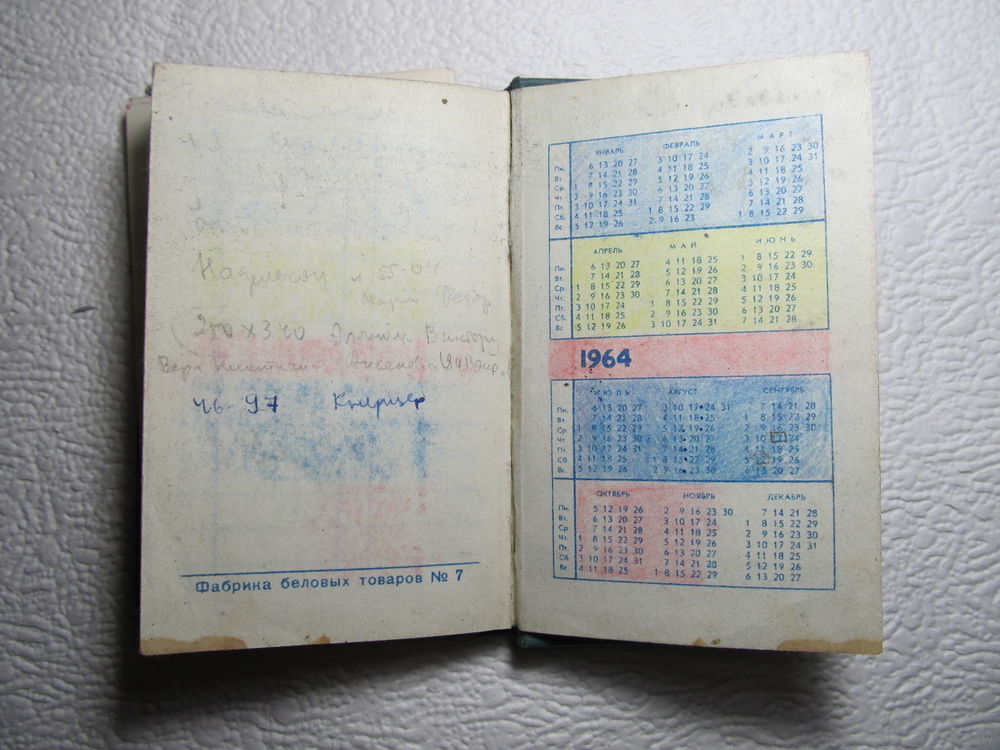 55-04
250х340
46-97
Фабрика беловых товаров № 7
ЯНВАРЬ ФЕВРАЛЬ МАРТ
Пн. 6 13 20 27 3 10 17 24 2 9 16 23 30
Вт. 7 14 21 28 4 11 18 25 3 10 17 24 31
Ср. 1 8 15 22 29 5 12 19 26 4 11 18 25
Чт. 2 9 16 23 30 6 13 20 27 5 12 19 26
Пт. 3 10 17 24 31 7 14 21 28 6 13 20 27
Сб. 4 11 18 25 1 8 15 22 29 7 14 21 28
Вс. 5 12 19 26 2 9 16 23 1 8 15 22 29
АПРЕЛЬ МАЙ ИЮНЬ
Пн. 6 13 20 27 4 11 18 25 1 8 15 22 29
Вт. 7 14 21 28 5 12 19 26 2 9 16 23 30
Ср. 1 8 15 22 29 6 13 20 27 3 10 17 24
Чт. 2 9 16 23 30 7 14 21 28 4 11 18 25
Пт. 3 10 17 24 1 8 15 22 29 5 12 19 26
Сб. 4 11 18 25 2 9 16 23 30 6 13 20 27
Вс. 5 12 19 26 3 10 17 24 31 7 14 21 28
1964
ИЮЛЬ АВГУСТ СЕНТЯБРЬ
Пн. 6 13 20 27 3 10 17 24 31 7 14 21 28
Вт. 7 14 21 28 4 11 18 25 1 8 15 22 29
Ср. 1 8 15 22 29 5 12 19 26 2 9 16 23 30
Чт. 2 9 16 23 30 6 13 20 27 3 10 17 24
Пт. 3 10 17 24 31 7 14 21 28 4 11 18 25
Сб. 4 11 18 25 1 8 15 22 29 5 12 19 26
Вс. 5 12 19 26 2 9 16 23 30 6 13 20 27
ОКТЯБРЬ НОЯБРЬ ДЕКАБРЬ
Пн. 5 12 19 26 2 9 16 23 30 7 14 21 28
Вт. 6 13 20 27 3 10 17 24 1 8 15 22 29
Ср. 7 14 21 28 4 11 18 25 2 9 16 23 30
Чт. 1 8 15 22 29 5 12 19 26 3 10 17 24 31
Пт. 2 9 16 23 30 6 13 20 27 4 11 18 25
Сб. 3 10 17 24 31 7 14 21 28 5 12 19 26
Вс. 4 11 18 25 1 8 15 22 29 6 13 20 27